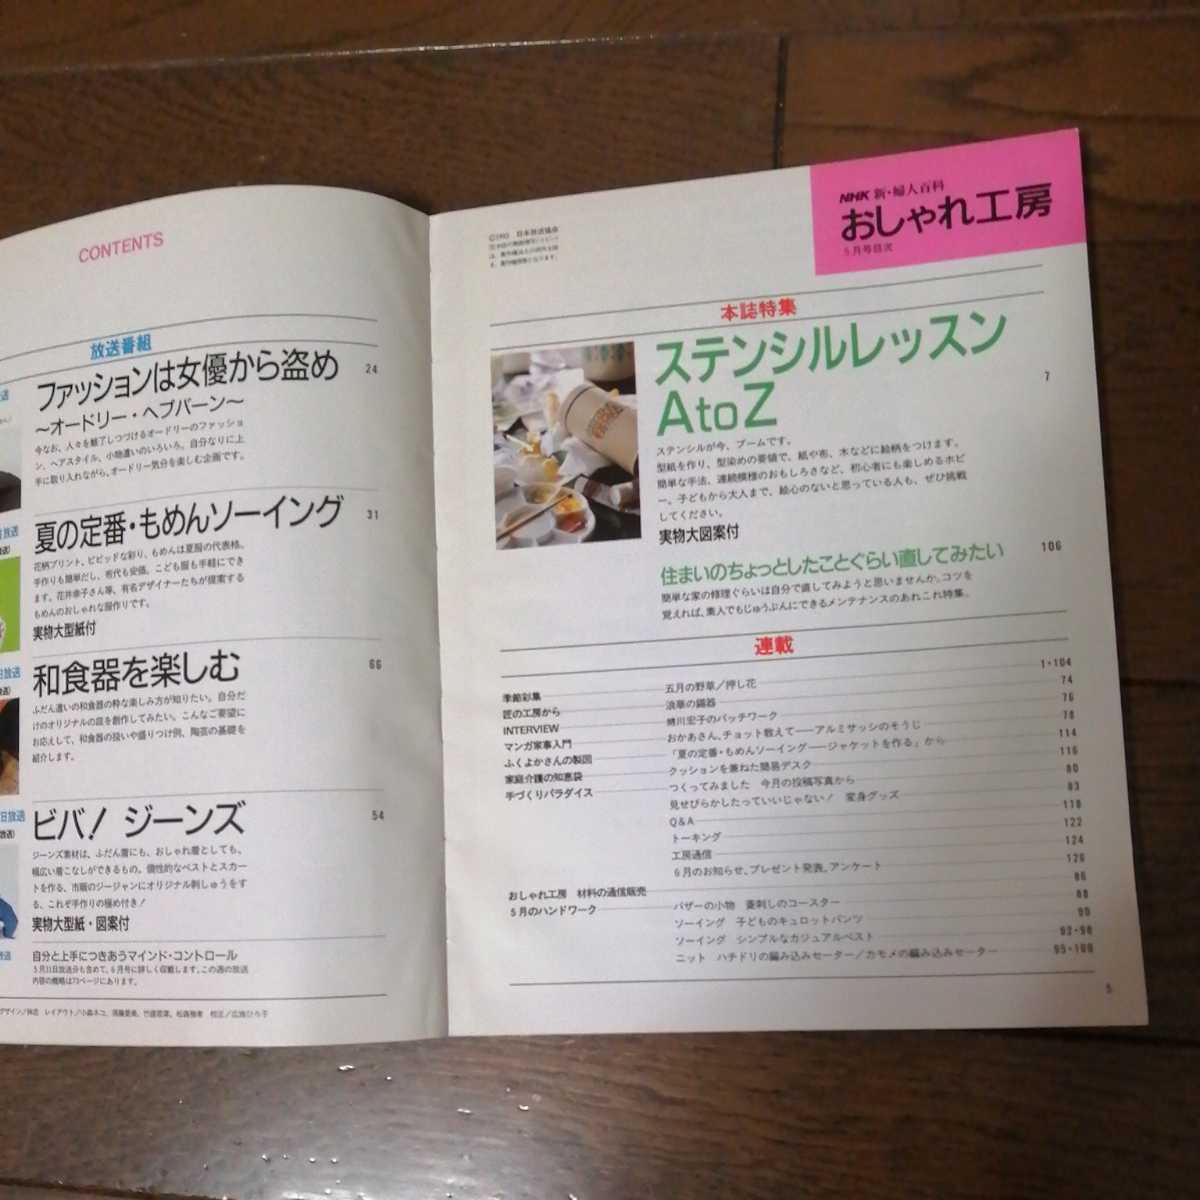 CONTENTS
放送番組
ファッションは女優から盗め
24
～オードリー・ヘプバーン～
今なお、人々を魅了しつづけるオードリーのファッショ
ン、ヘアスタイル、小物遣いのいろいろ。自分なりに上
手に取り入れながら、オードリー気分を楽しむ企画です。
夏の定番・もめんソーイング
31
花柄プリント、ビビッドな彩り、もめんは夏服の代表格。
手作りも簡単だし、布代も安価。こども服も手軽にでき
ます。花井幸子さん等、有名デザイナーたちが提案する
もめんのおしゃれな服作りです。
実物大型紙付
和食器を楽しむ
66
ふだん遣いの和食器の粋な楽しみ方が知りたい。自分だ
けのオリジナルの皿を創作してみたい。こんなご要望に
お応えして、和食器の扱いや盛りつけ例、陶芸の基礎を
紹介します。
ビバ！ ジーンズ
54
ジーンズ素材は、ふだん着にも、おしゃれ着としても、
幅広い着こなしができるもの。個性的なベストとスカー
トを作る、市販のジージャンにオリジナル刺しゅうをす
る、これぞ手作りの極め付き！
実物大型紙・図案付
自分と上手につきあうマインド・コントロール
5月31日放送分も含めて、6月号に詳しく収載します。この週の放送
内容の概略は73ページにあります。
NHK 新・婦人百科
おしゃれ工房
5月号目次
©1993 日本放送協会
本誌特集
ステンシルレッスン
AtoZ
7
ステンシルが今、ブームです。
型紙を作り、型染めの要領で、紙や布、木などに絵柄をつけます。
簡単な手法、連続模様のおもしろさなど、初心者にも楽しめるホビ
ー。子どもから大人まで、絵心のないと思っている人も、ぜひ挑戦
してください。
実物大図案付
住まいのちょっとしたことぐらい直してみたい
106
簡単な家の修理ぐらいは自分で直してみようと思いませんか。コツを
覚えれば、素人でもじゅうぶんにできるメンテナンスのあれこれ特集。
連載
季節彩集 五月の野草／押し花 1・104
匠の工房から 浪華の錫器 74
INTERVIEW 蜷川宏子のパッチワーク 76
マンガ家事入門 おかあさん、チョット教えて——アルミサッシのそうじ 78
ふくよかさんの製図 「夏の定番・もめんソーイング——ジャケットを作る」から 114
家庭介護の知恵袋 クッションを兼ねた簡易デスク 116
手づくりパラダイス つくってみました 今月の投稿写真から 80
見せびらかしたっていいじゃない！ 変身グッズ 83
Q&A 118
トーキング 122
工房通信 124
6月のお知らせ、プレゼント発表、アンケート 126
おしゃれ工房 材料の通信販売 86
5月のハンドワーク バザーの小物 釜刺しのコースター 88
ソーイング 子どものキュロットパンツ 90
ソーイング シンプルなカジュアルベスト 92・98
ニット ハチドリの編み込みセーター／カモメの編み込みセーター 95・100
5